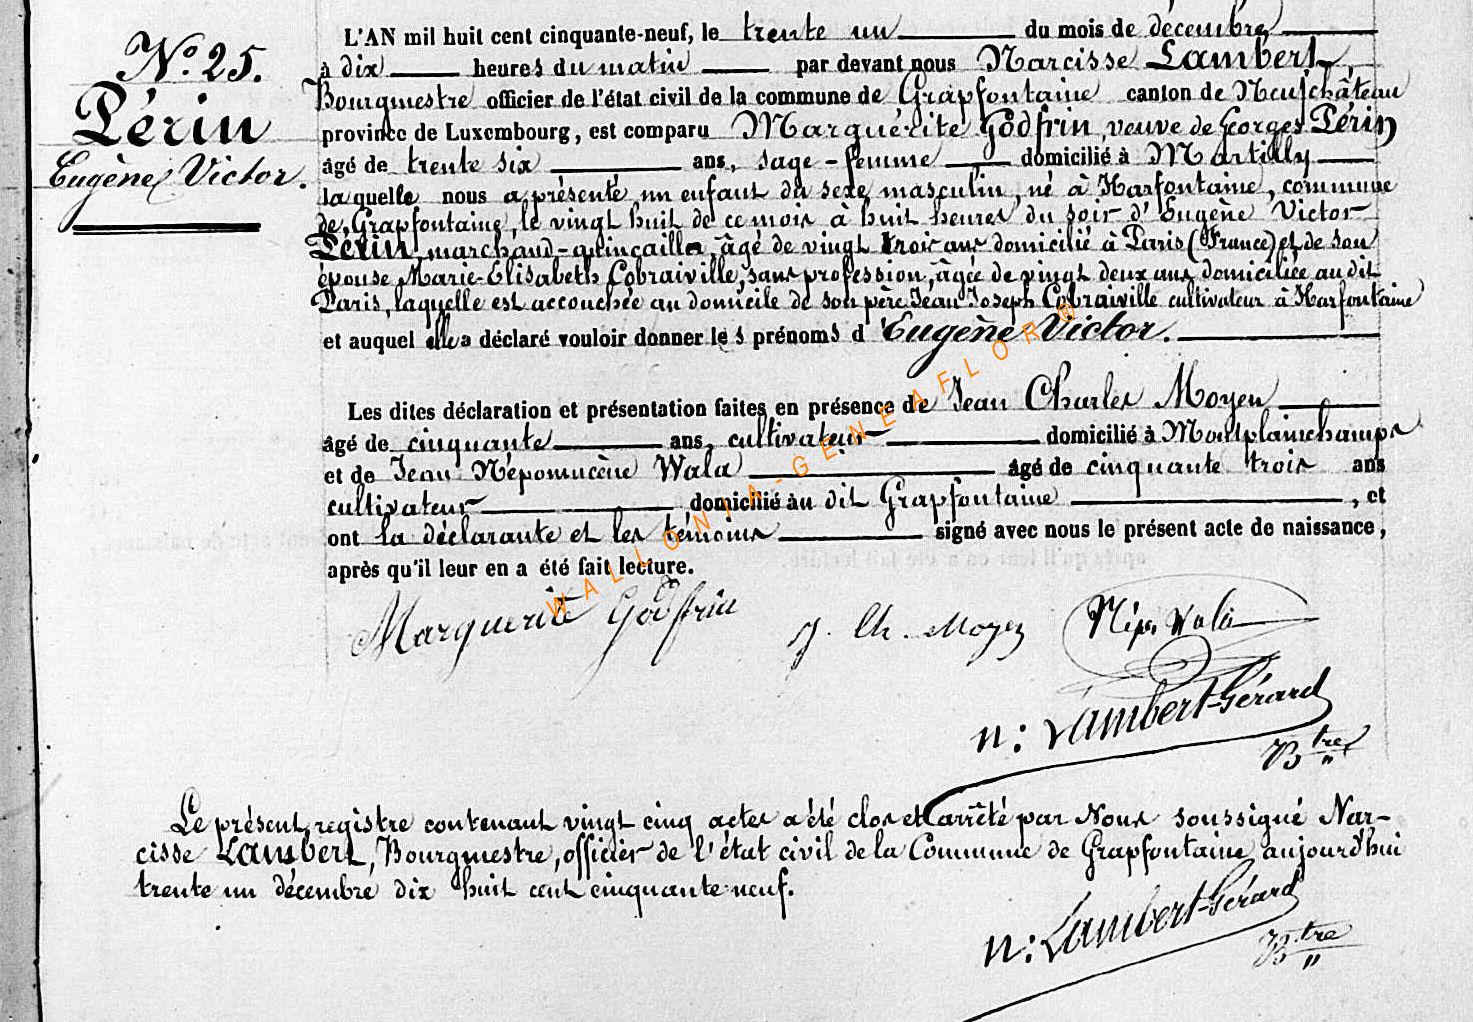 N.º 25.
Périn
Eugène Victor.
L'AN mil huit cent cinquante-neuf, le trente un du mois de décembre
à dix heures du matin par devant nous Narcisse Lambert,
Bourgmestre officier de l'état civil de la commune de Grapfontaine canton de Neufchâteau
province de Luxembourg, est comparu Marguérite Godfrin, veuve de Georges Périn
âgé de trente six ans, sage-femme domicilié à Martilly
laquelle nous a présenté un enfant du sexe masculin, né à Harfontaine, commune
de Grapfontaine, le vingt huit de ce mois à huit heures du soir d'Eugène Victor
Périn, marchand-quincailler, âgé de vingt trois ans domicilié à Paris (France) et de son
épouse Marie-Elisabeth Cobraiville, sans profession, âgée de vingt deux ans domiciliée au dit
Paris, laquelle est accouchée au domicile de son père Jean Joseph Cobraiville cultivateur à Harfontaine
et auquel elle a déclaré vouloir donner les prénoms d'Eugène Victor.
Les dites déclaration et présentation faites en présence de Jean Charles Moyen
âgé de cinquante ans, cultivateur domicilié à Montplainchamps
et de Jean Népomucène Wala âgé de cinquante trois ans
cultivateur domicilié au dit Grapfontaine, et
ont la déclarante et les témoins signé avec nous le présent acte de naissance,
après qu'il leur en a été fait lecture.
Marguerite Godfrin J. Ch. Moyen Nép. Wala
N: Lambert-Gérard
Btre
Le présent registre contenant vingt cinq actes a été clos et arrêté par Nous soussigné Nar-
cisse Lambert, Bourgmestre, officier de l'état civil de la Commune de Grapfontaine aujourd'hui
trente un décembre dix huit cent cinquante-neuf.
N: Lambert-Gérard
Btre
WALLONIA-GENEAFLOR®